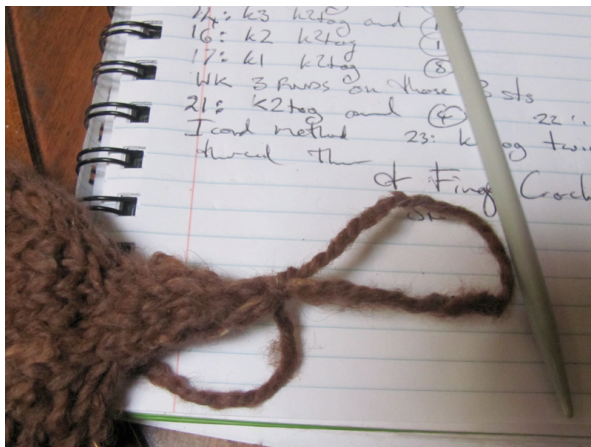 14: k3 k2tog and
16: k2 k2tog
17: k1 k2tog 8
WK 3 RNDS on those sts
21: K2tog and 4 22:
Icord method 23: k tog twice
thread thru
of Finger Croch